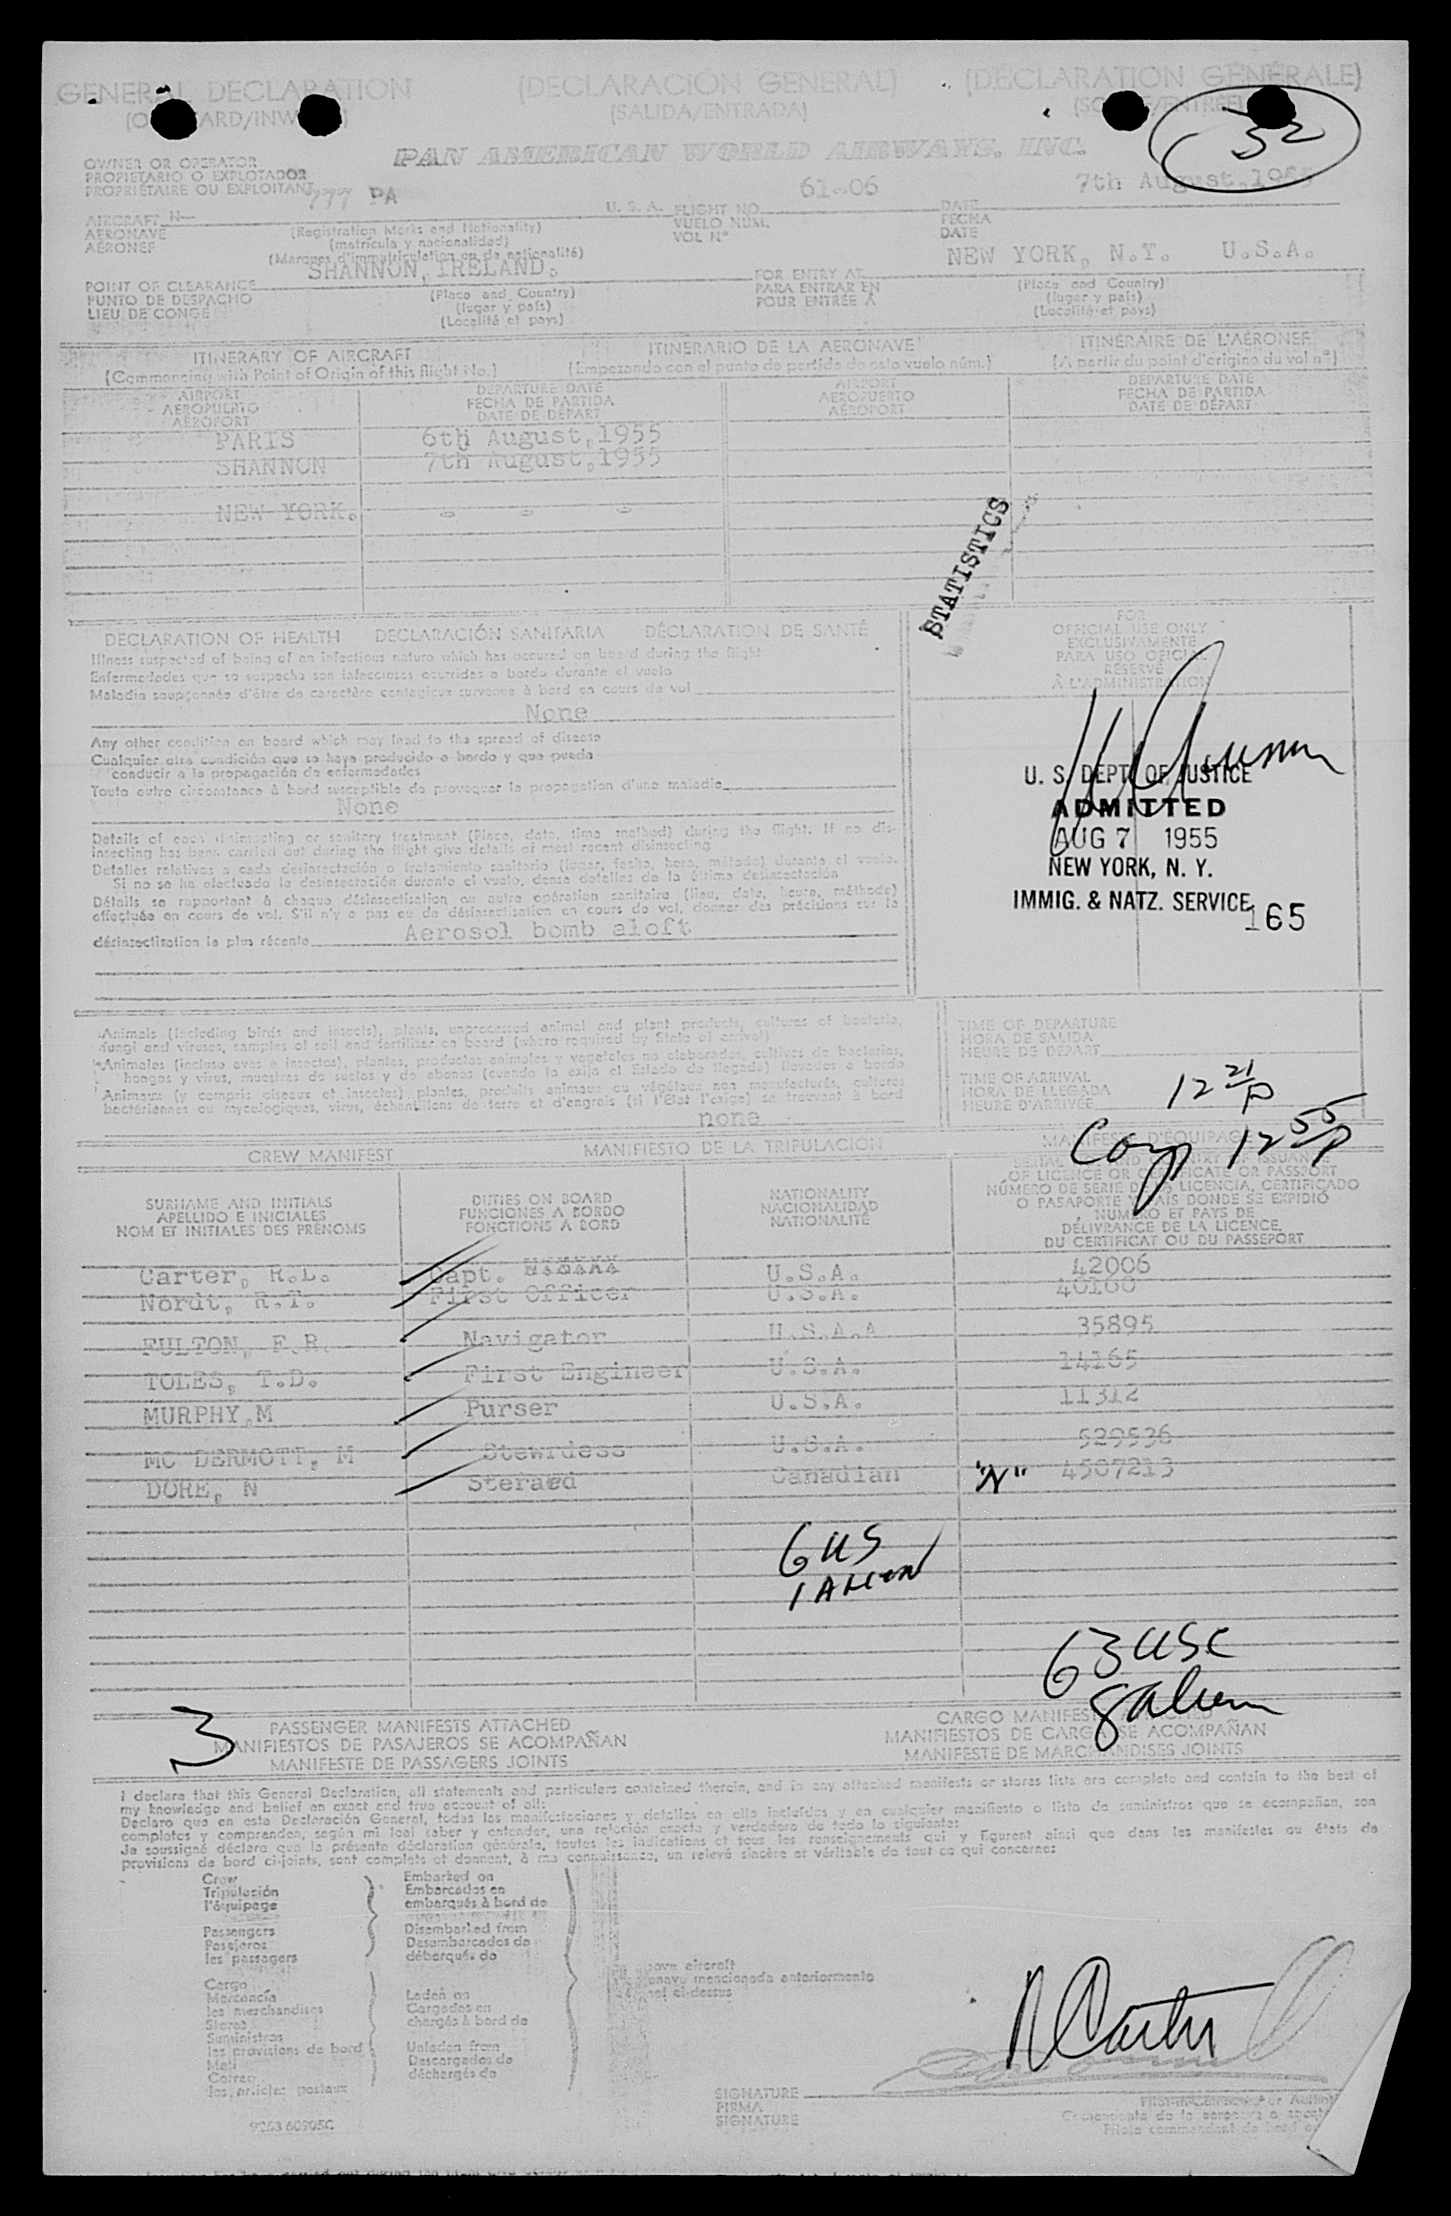 GENERAL DECLARATION (DECLARACIÓN GENERAL) (DÉCLARATION GÉNÉRALE)
(SALIDA/ENTRADA)
52
PAN AMERICAN WORLD AIRWAYS, INC.
OWNER OR OPERATOR
PROPIETARIO O EXPLOTADOR
PROPRIÉTAIRE OU EXPLOITANT
777 PA 61-06 7th August, 1955
AIRCRAFT N— U. S. A. FLIGHT NO. DATE
AERONAVE (Registration Marks and Nationality) VUELO NUM. FECHA
AÉRONEF (matrícula y nacionalidad) VOL Nº DATE
(Marques d'immatriculation ou de nationalité)
SHANNON, IRELAND. NEW YORK, N.Y. U.S.A.
POINT OF CLEARANCE (Place and Country) FOR ENTRY AT (Place and Country)
PUNTO DE DESPACHO (lugar y país) PARA ENTRAR EN (lugar y país)
LIEU DE CONGÉ (Localité et pays) POUR ENTRÉE À (Localité et pays)
ITINERARY OF AIRCRAFT ITINERARIO DE LA AERONAVE ITINÉRAIRE DE L'AÉRONEF
(Commencing with Point of Origin of this flight No.) (Empezando con el punto de partida de este vuelo núm.) (A partir du point d'origine du vol nº)
AIRPORT DEPARTURE DATE AIRPORT DEPARTURE DATE
AEROPUERTO FECHA DE PARTIDA AEROPUERTO FECHA DE PARTIDA
AÉROPORT DATE DE DÉPART AÉROPORT DATE DE DÉPART
PARIS 6th August, 1955
SHANNON 7th August, 1955
NEW YORK. - - -
STATISTICS
DECLARATION OF HEALTH DECLARACIÓN SANITARIA DÉCLARATION DE SANTÉ
Illness suspected of being of an infectious nature which has occured on board during the flight
Enfermedades que se sospecha son infecciosas ocurridas a bordo durante el vuelo
Maladie soupçonnée d'être de caractère contagieux survenue à bord en cours de vol
None
Any other condition on board which may lead to the spread of disease
Cualquier otra condición que se haya producido a bordo y que pueda
conducir a la propagación de enfermedades
Toute autre circonstance à bord susceptible de provoquer la propagation d'une maladie
None
Details of each disinsecting or sanitary treatment (Place, date, time method) during the flight. If no dis-
insecting has been carried out during the flight give details of most recent disinsecting
Detalles relativos a cada desinsectación o tratamiento sanitario (lugar, fecha, hora, método) durante el vuelo.
Si no se ha efectuado la desinsectación durante el vuelo, dense detalles de la última desinsectación
Détails se rapportant à chaque désinsectisation ou autre opération sanitaire (lieu, date, heure, méthode)
effectuée en cours de vol. S'il n'y a pas eu de désinsectisation en cours de vol, donner des précisions sur la
désinsectisation la plus récente Aerosol bomb aloft
FOR
OFFICIAL USE ONLY
EXCLUSIVAMENTE
PARA USO OFICIAL
RÉSERVÉ
À L'ADMINISTRATION
U. S. DEPT. OF JUSTICE
ADMITTED
AUG 7 1955
NEW YORK, N. Y.
IMMIG. & NATZ. SERVICE
165
Animals (including birds and insects), plants, unprocessed animal and plant products, cultures of bacteria,
fungi and viruses, samples of soil and fertiliser on board (where required by State of arrival)
Animales (incluso aves e insectos), plantas, productos animales y vegetales no elaborados, cultivos de bacterias,
hongos y virus, muestras de suelos y de abonos (cuando lo exija el Estado de llegada) llevados a bordo
Animaux (y compris oiseaux et insectes) plantes, produits animaux ou végétaux non manufacturés, cultures
bactériennes ou mycologiques, virus, échantillons de terre et d'engrais (si l'État l'exige) se trouvant à bord
none
TIME OF DEPARTURE
HORA DE SALIDA
HEURE DE DÉPART
TIME OF ARRIVAL
HORA DE LLEGADA
HEURE D'ARRIVÉE
12 21 P
Comp 12 55 P
CREW MANIFEST MANIFIESTO DE LA TRIPULACIÓN
SURNAME AND INITIALS DUTIES ON BOARD NATIONALITY
APELLIDO E INICIALES FUNCIONES A BORDO NACIONALIDAD
NOM ET INITIALES DES PRÉNOMS FONCTIONS À BORD NATIONALITÉ
NUMÉRO ET PAYS DE
DÉLIVRANCE DE LA LICENCE,
DU CERTIFICAT OU DU PASSEPORT
Carter, R.L. Capt. U.S.A. 42006
Nordt, R.T. First Officer U.S.A. 40160
FULTON, F.R. Navigator U.S.A. 35895
TOLES, T.D. First Engineer U.S.A. 14165
MURPHY, M Purser U.S.A. 11312
MC DERMOTT, M Stewrdess U.S.A. 529536
DORE, N Steraed Canadian "N" 4507213
6 US
1 ALIEN
63 USC
8 alien
3
PASSENGER MANIFESTS ATTACHED
MANIFIESTOS DE PASAJEROS SE ACOMPAÑAN
MANIFESTE DE PASSAGERS JOINTS
CARGO MANIFESTS ATTACHED
MANIFIESTOS DE CARGA SE ACOMPAÑAN
MANIFESTE DE MARCHANDISES JOINTS
I declare that this General Declaration, all statements and particulars contained therein, and in any attached manifests or stores lists are complete and contain to the best of
my knowledge and belief an exact and true account of all:
Declaro que en esta Declaración General, todas las manifestaciones y detalles en ella incluídos y en cualquier manifiesto o lista de suministros que se acompañan, son
completos y comprenden, según mi leal saber y entender, una relación exacta y verdadera de todo lo siguiente:
Je soussigné déclare que la présente déclaration générale, toutes les indications et tous les renseignements qui y figurent ainsi que dans les manifestes ou états de
provisions de bord ci-joints, sont complets et donnent, à ma connaissance, un relevé sincère et véritable de tout ce qui concerne:
Crew Embarked on
Tripulación Embarcados en
l'équipage embarqués à bord de
Passengers Disembarked from
Pasajeros Desembarcados de
les passagers débarqués de
above aircraft
aeronave mencionada anteriormente
Cargo
Mercancía Laden on
les marchandises Cargados en
Stores chargés à bord de
Suministros
les provisions de bord Unladen from
Mail Descargados de
Correo déchargés de
les articles postaux
R Carter
SIGNATURE
FIRMA
SIGNATURE